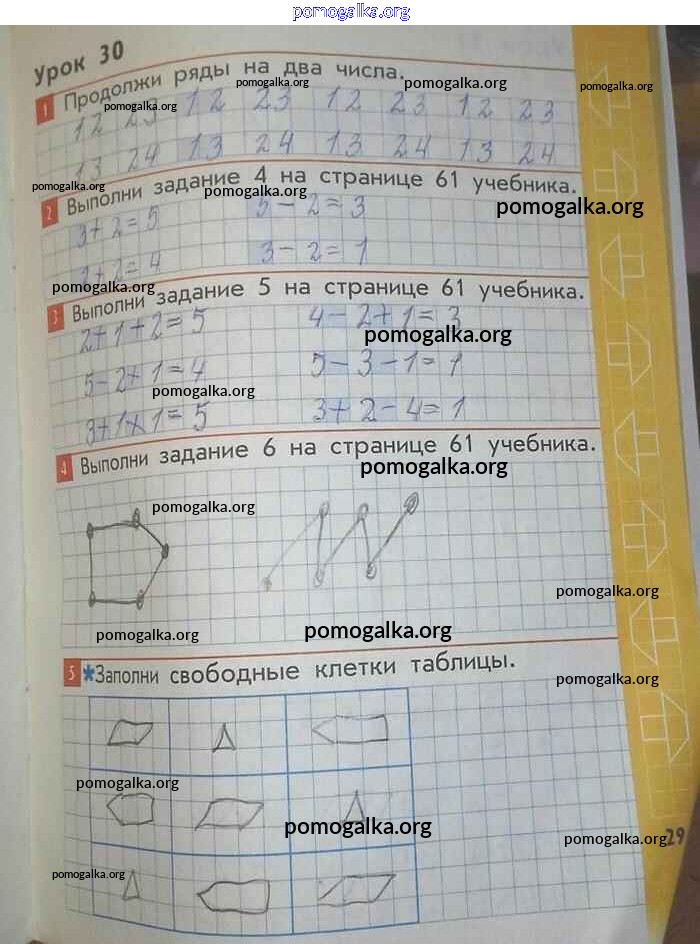 pomogalka.org
Урок 30
1 Продолжи ряды на два числа.
pomogalka.org pomogalka.org pomogalka.org pomogalka.org
12 23 12 23 12 23 12 23
13 24 13 24 13 24 13 24
2 Выполни задание 4 на странице 61 учебника.
pomogalka.org pomogalka.org pomogalka.org
3+2=5 5-2=3
2+2=4 3-2=1
pomogalka.org
3 Выполни задание 5 на странице 61 учебника.
2+1+2=5 4-2+1=3
pomogalka.org
5-2+1=4 5-3-1=1
pomogalka.org pomogalka.org
3+1+1=5 3+2-4=1
4 Выполни задание 6 на странице 61 учебника.
pomogalka.org
pomogalka.org
pomogalka.org
pomogalka.org pomogalka.org
5 *Заполни свободные клетки таблицы.
pomogalka.org
pomogalka.org
pomogalka.org
pomogalka.org 29
pomogalka.org